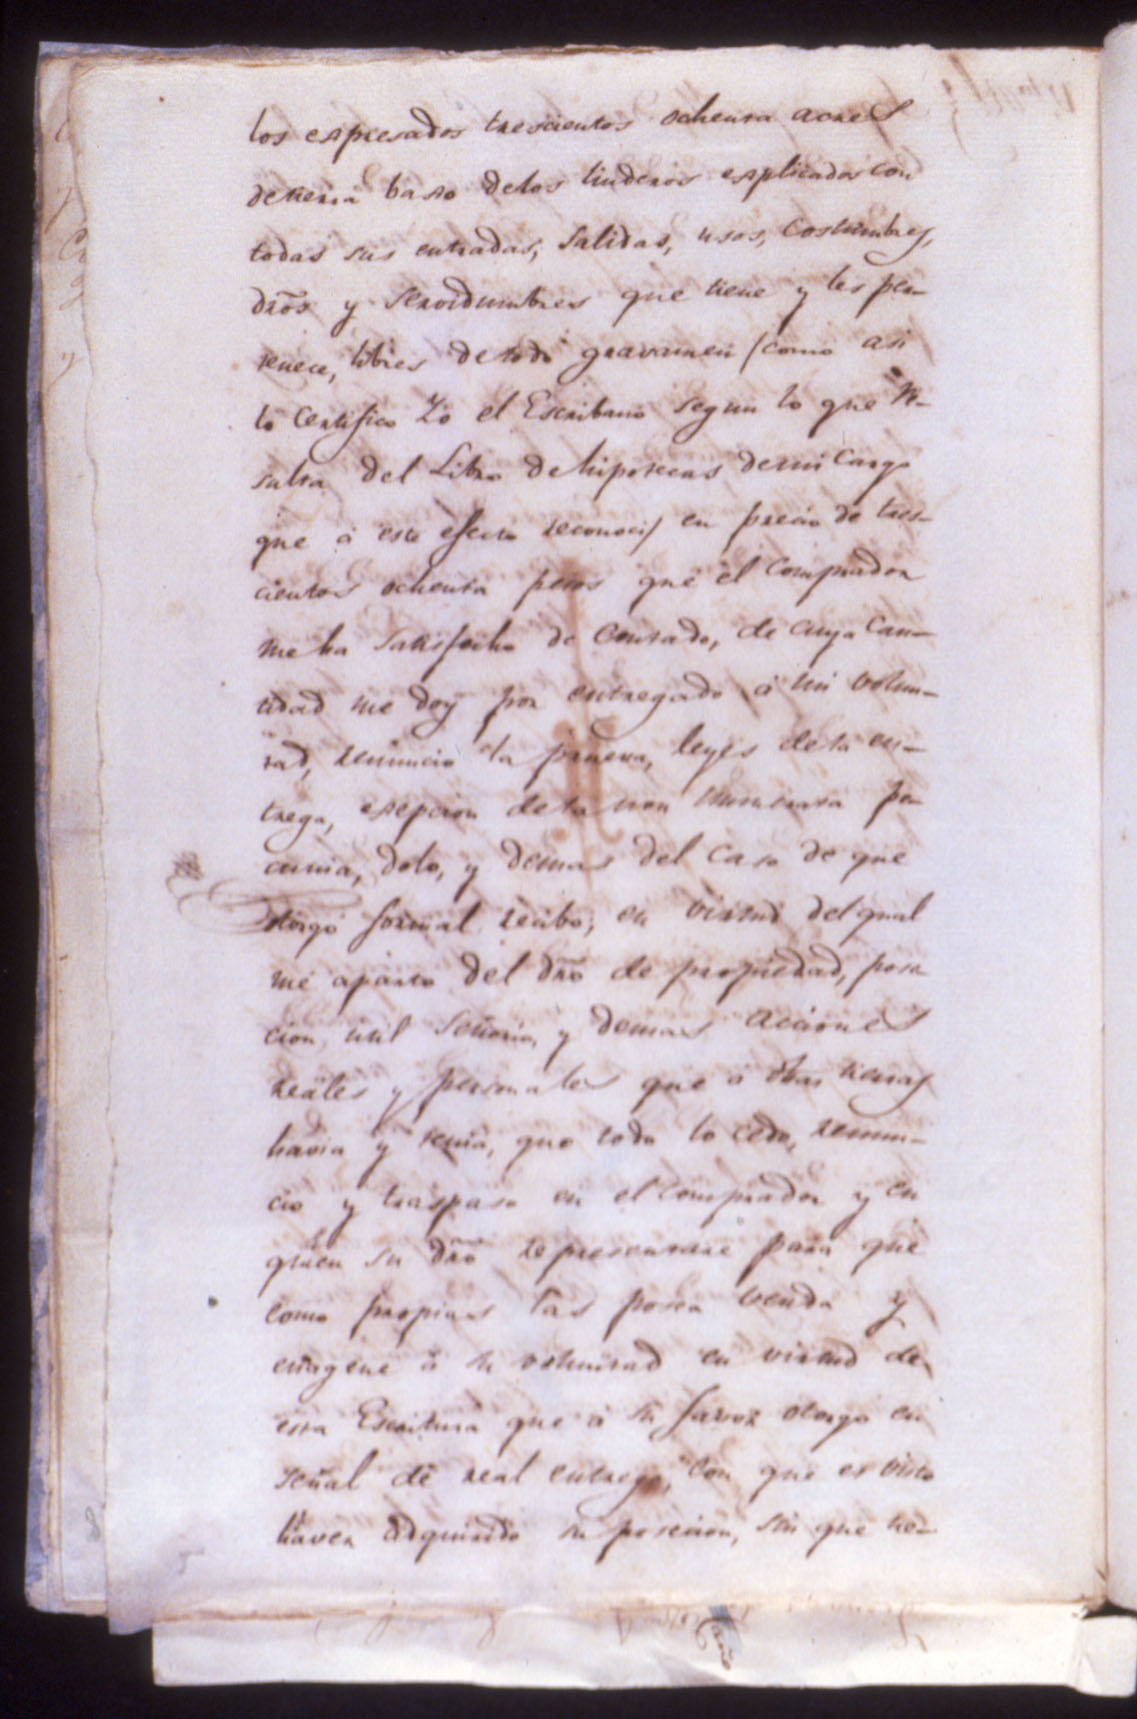 los espresados trescientos ochenta acres
de tierra baxo de los linderos esplicados con
todas sus entradas, salidas, usos, costumbres,
dr̃os y servidumbres que tiene y les per-
tenece, libres de todo gravamen (como asi
lo Certifico Yo el Escribano segun lo que Re-
sulta del Libro de hipotecas de mi Cargo
que á este efecto reconoci) en precio de tres-
cientos ochenta pesos que el Comprador
me ha satisfecho de Contado, de cuya Can-
tidad me doy por entregado á mi volun-
tad, renuncio la prueva, leyes de la en-
trega, esepcion de la non numerata pe-
cunia, dolo, y demas del caso de que
otorgo formal recibo; en virtud del qual
me aparto del dr̃o de propiedad, pose-
cion, util señorio, y demas acciones
reales y personales que á dh̃as tierras
havia y tenia, que todo lo cedo, renun-
cio y traspaso en el comprador y en
quien su dr̃o representare para que
como propias las posea venda y
enagene á su voluntad en virtud de
esta Escritura que á su favor otorgo en
señal de real entrega, con que es visto
haver adquirido su posecion, sin que ne-